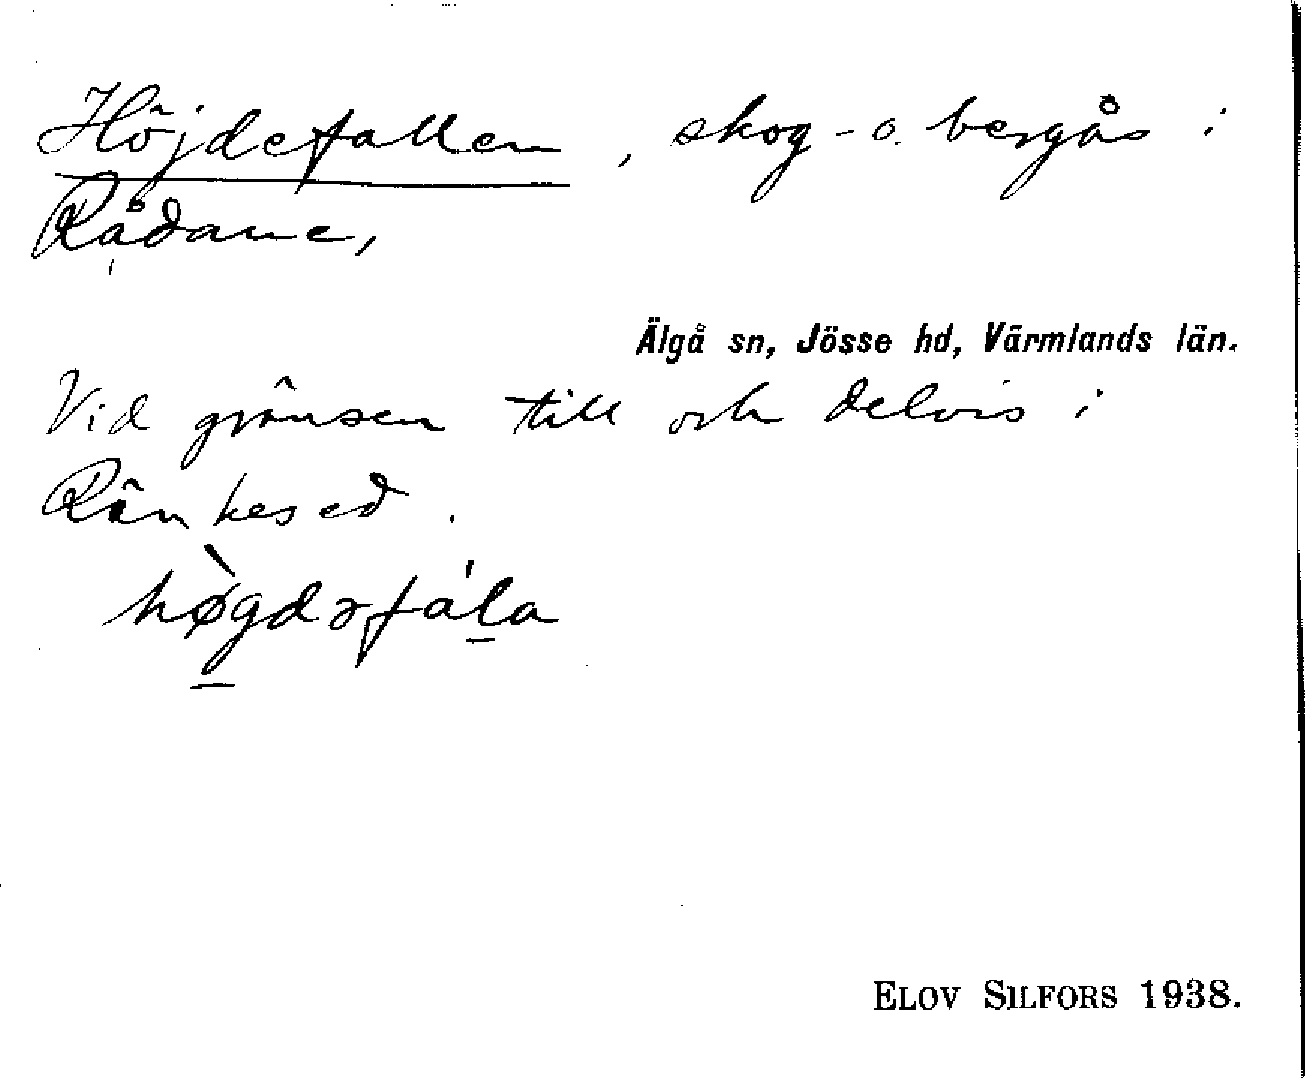 Höjdefallen, skog- o. bergås i
Rådane,
Älgå sn, Jösse hd, Värmlands län.
Vid gränsen till och delvis i
Ränkesed.
hø̀gdəfála
ELOV SILFORS 1938.